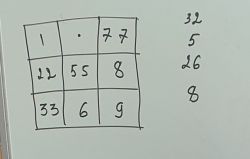 1 . 77
22 55 8
33 6 9
32
5
26
8